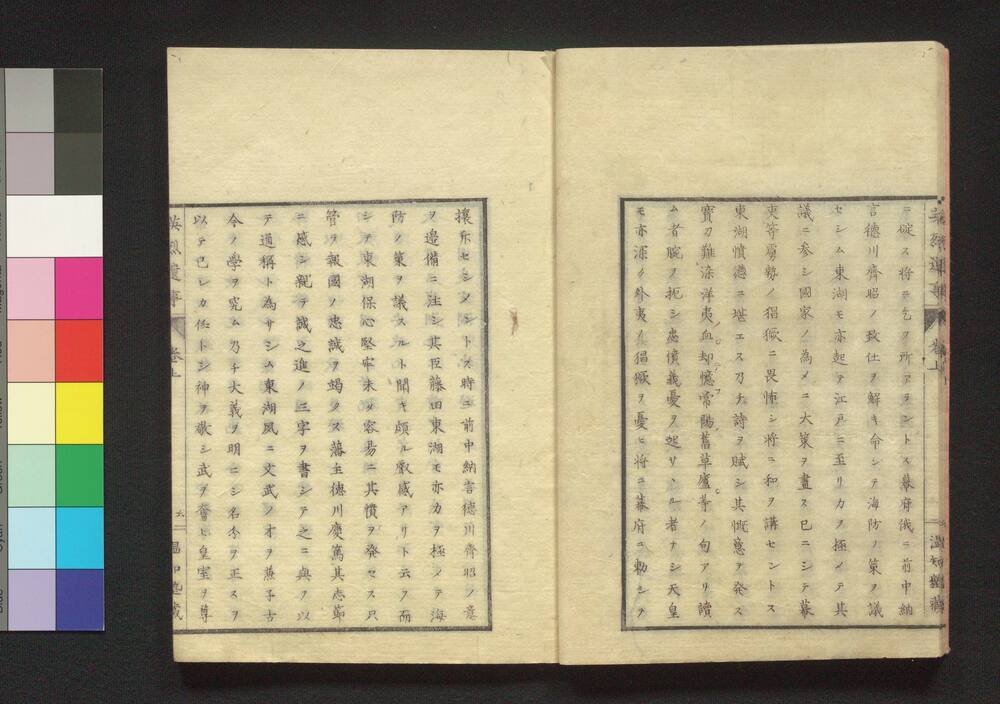 ニ碇ス将ニ乞フ所アラントス幕府俄ニ前中納
言德川齊昭ノ致仕ヲ解キ命シテ海防ノ策ヲ議
セシム東湖モ亦起テ江戸ニ至リカヲ極メテ其
議ニ参シ國家ノ為メニ大策ヲ畫ス已ニシテ幕
吏等虜勢ノ猖獗ニ畏怖シ将ニ和ヲ講セントス
東湖憤德ニ堪エス乃チ詩ヲ賦シ其慨意ヲ発ス
寶刀難染洋夷血却憶常陽舊草廬等ノ句アリ讀
ム者腕ヲ扼シ忠憤義憂ヲ起サヽル者ナシ天皇
モ亦深ク外夷ノ猖獗ヲ憂ヒ将ニ幕府ニ勅シテ
攘斥セシメントス時ニ前中納言德川齊昭ノ意
ヲ邉備ニ注シ其臣藤田東湖モ亦カヲ極メテ海
防ノ策ヲ議スルト聞キ頗ル叡感アリト云フ而
シテ東湖保心堅牢未タ容易ニ其憤ヲ発セス只
管ヲ報國ノ忠誠ヲ竭クス藩主德川慶篤其志節
ニ感シ親テ誠之進ノ三字ヲ書シテ之ニ與フ以
テ通稱ト為サシム東湖夙ニ文武ノオヲ兼子古
今ノ學ヲ究ム乃チ大義ヲ明ニシ名分ヲ正スヲ
以テ己レカ任トシ神ヲ敬シ武ヲ奮ヒ皇室ヲ尊
英烈遺事 卷上 六